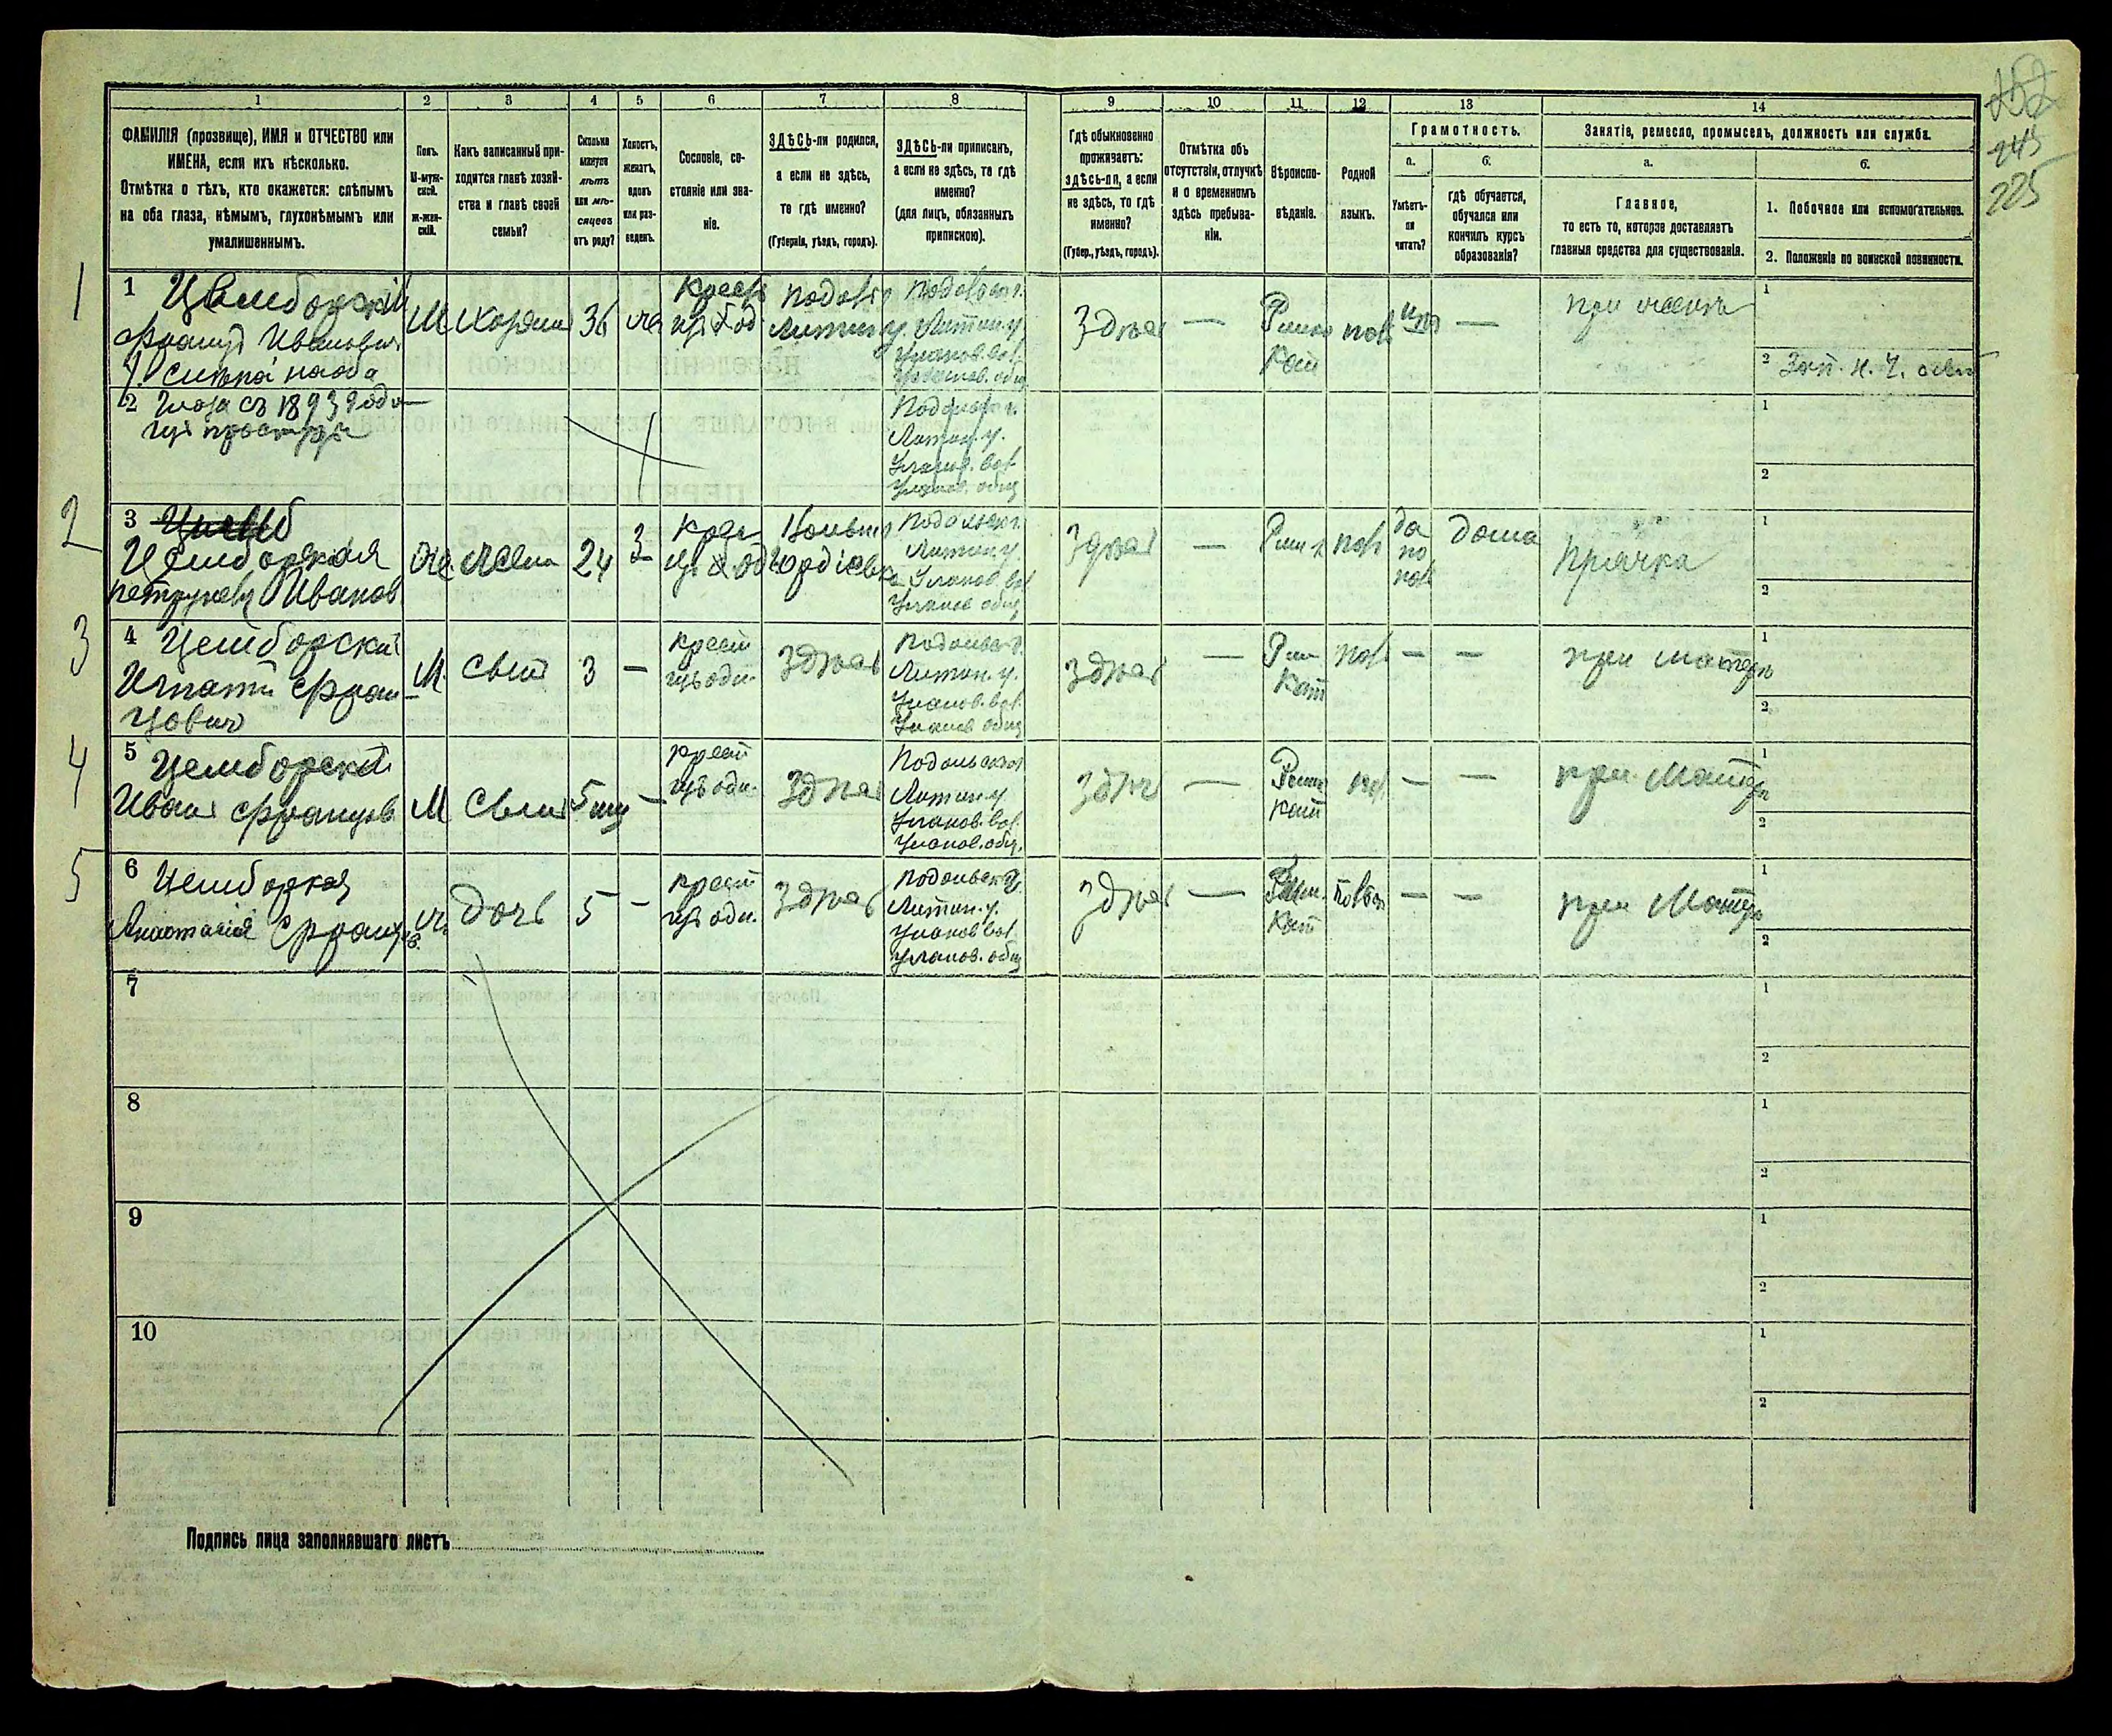 1
2
3
4
5
6
7
8
9
10
11
12
13
14
ФАМИЛІЯ (прозвище), ИМЯ и ОТЧЕСТВО или
ИМЕНА, если ихъ нѣсколько.
Отмѣтка о тѣхъ, кто окажется: слѣпымъ
на оба глаза, нѣмымъ, глухонѣмымъ или
умалишеннымъ.
Полъ.
М-муж-
ской.
Ж-жен-
скій.
Какъ записанный при-
ходится главѣ хозяй-
ства и главѣ своей
семьи?
Сколько
минуло
лѣтъ
или мѣ-
сяцевъ
отъ роду?
Холостъ,
женатъ,
вдовъ
или раз-
веденъ.
Сословіе, со-
стояніе или зва-
ніе.
ЗДѢСЬ-ли родился,
а если не здѣсь,
то гдѣ именно?
(Губернія, уѣздъ, городъ).
ЗДѢСЬ-ли приписанъ,
а если не здѣсь, то гдѣ
именно?
(для лицъ, обязанныхъ
припискою).
Гдѣ обыкновенно
проживаетъ:
здѣсь-ли, а если
не здѣсь, то гдѣ
именно?
(Губер., уѣздъ, городъ).
Отмѣтка объ
отсутствіи, отлучкѣ
и о временномъ
здѣсь пребыва-
ніи.
Вѣроиспо-
вѣданіе.
Родной
языкъ.
Грамотность.
а.
Умѣетъ-
ли
читать?
б.
гдѣ обучается,
обучался или
кончилъ курсъ
образованія?
Занятіе, ремесло, промыселъ, должность или служба.
а.
Главное,
то есть то, которое доставляетъ
главныя средства для существованія.
б.
1. Побочное или вспомогательное.
2. Положеніе по воинской повинности.
245
225
1
1
Цемборскій
Францъ Иванович
слѣпой на оба
М
36
Литин. у.
Литин. у
Уланов. вол.
Здѣсь
—
кат
пол
—
при женѣ
1
2
2
глаза съ 1893 года
Литин. у.
1
2
2
3
Цемборская
Иванов
жена
24
З
Литин. у.
Уланов. вол
Уланов общ
Здѣсь
—
пол
да
по
пол
дома
прачка
1
2
3
4
Цемборскій
Игнатій Фран
цович
М
Сын
3
—
крест
Здѣсь
Литин. у.
Уланов. вол.
Уланов общ
Здѣсь
—
Рим
кат
пол
—
—
при матери
1
2
4
5
Цемборскій
Иван Францов
М
Сын
5 м
—
крест
Здѣсь
Литин. у
Уланов. вол.
Уланов. общ.
Здѣс
—
Рим
кат
пол
—
—
при матери
1
2
5
6
Цемборкая
Анастасія Францов.
ж
Дочь
5
—
крест
Здѣсь
Литин. у.
Уланов вол
Уланов. общ
Здѣсь
—
Рим.
кат
—
—
при матери
1
2
7
1
2
8
1
2
9
1
2
10
1
2
Подпись лица заполнявшаго листъ